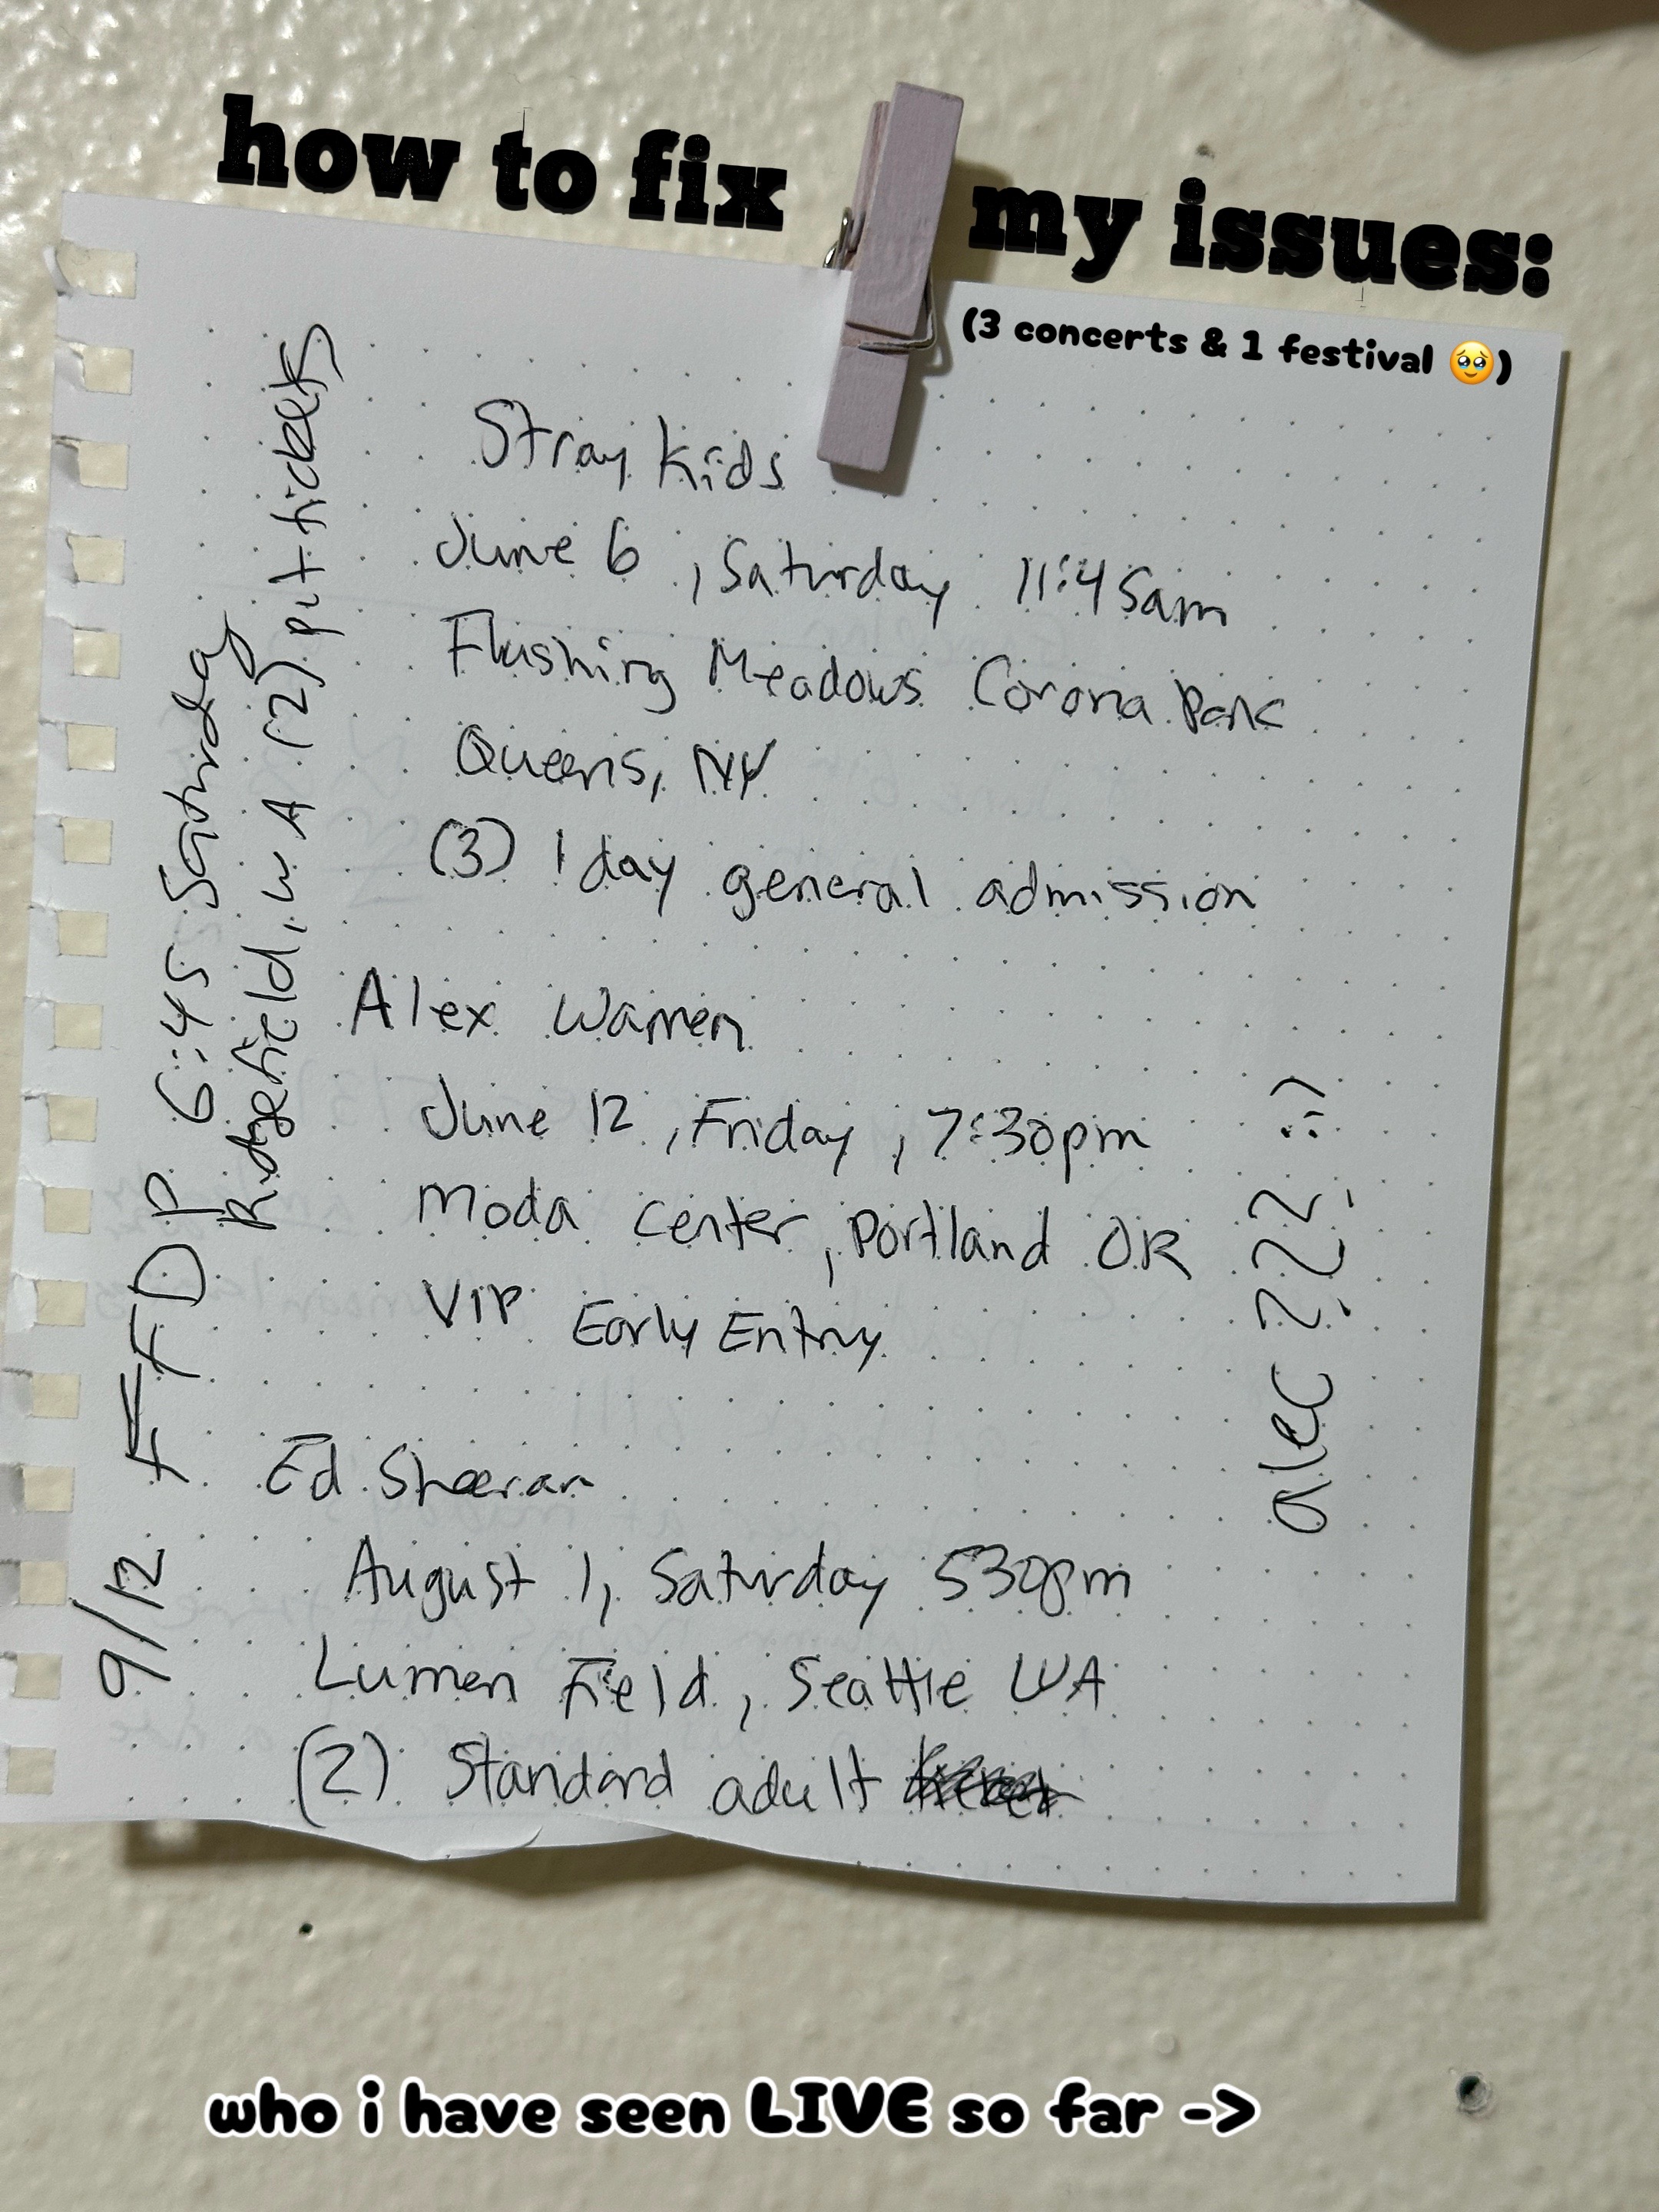 how to fix my issues:
(3 concerts & 1 festival 🥹)
Stray Kids
June 6, Saturday 11:45am
Flushing Meadows Corona Park
Queens, NY
(3) 1 day general admission
Alex Warren
June 12, Friday, 7:30pm
Moda Center, Portland OR
VIP Early Entry
Ed Sheeran
August 1, Saturday 530pm
Lumen Field, Seattle WA
(2) Standard adult
9/12 FFDP 6:45 Saturday
Ridgefield, WA (2) pit tickets
alec ??? :)
who i have seen LIVE so far ->